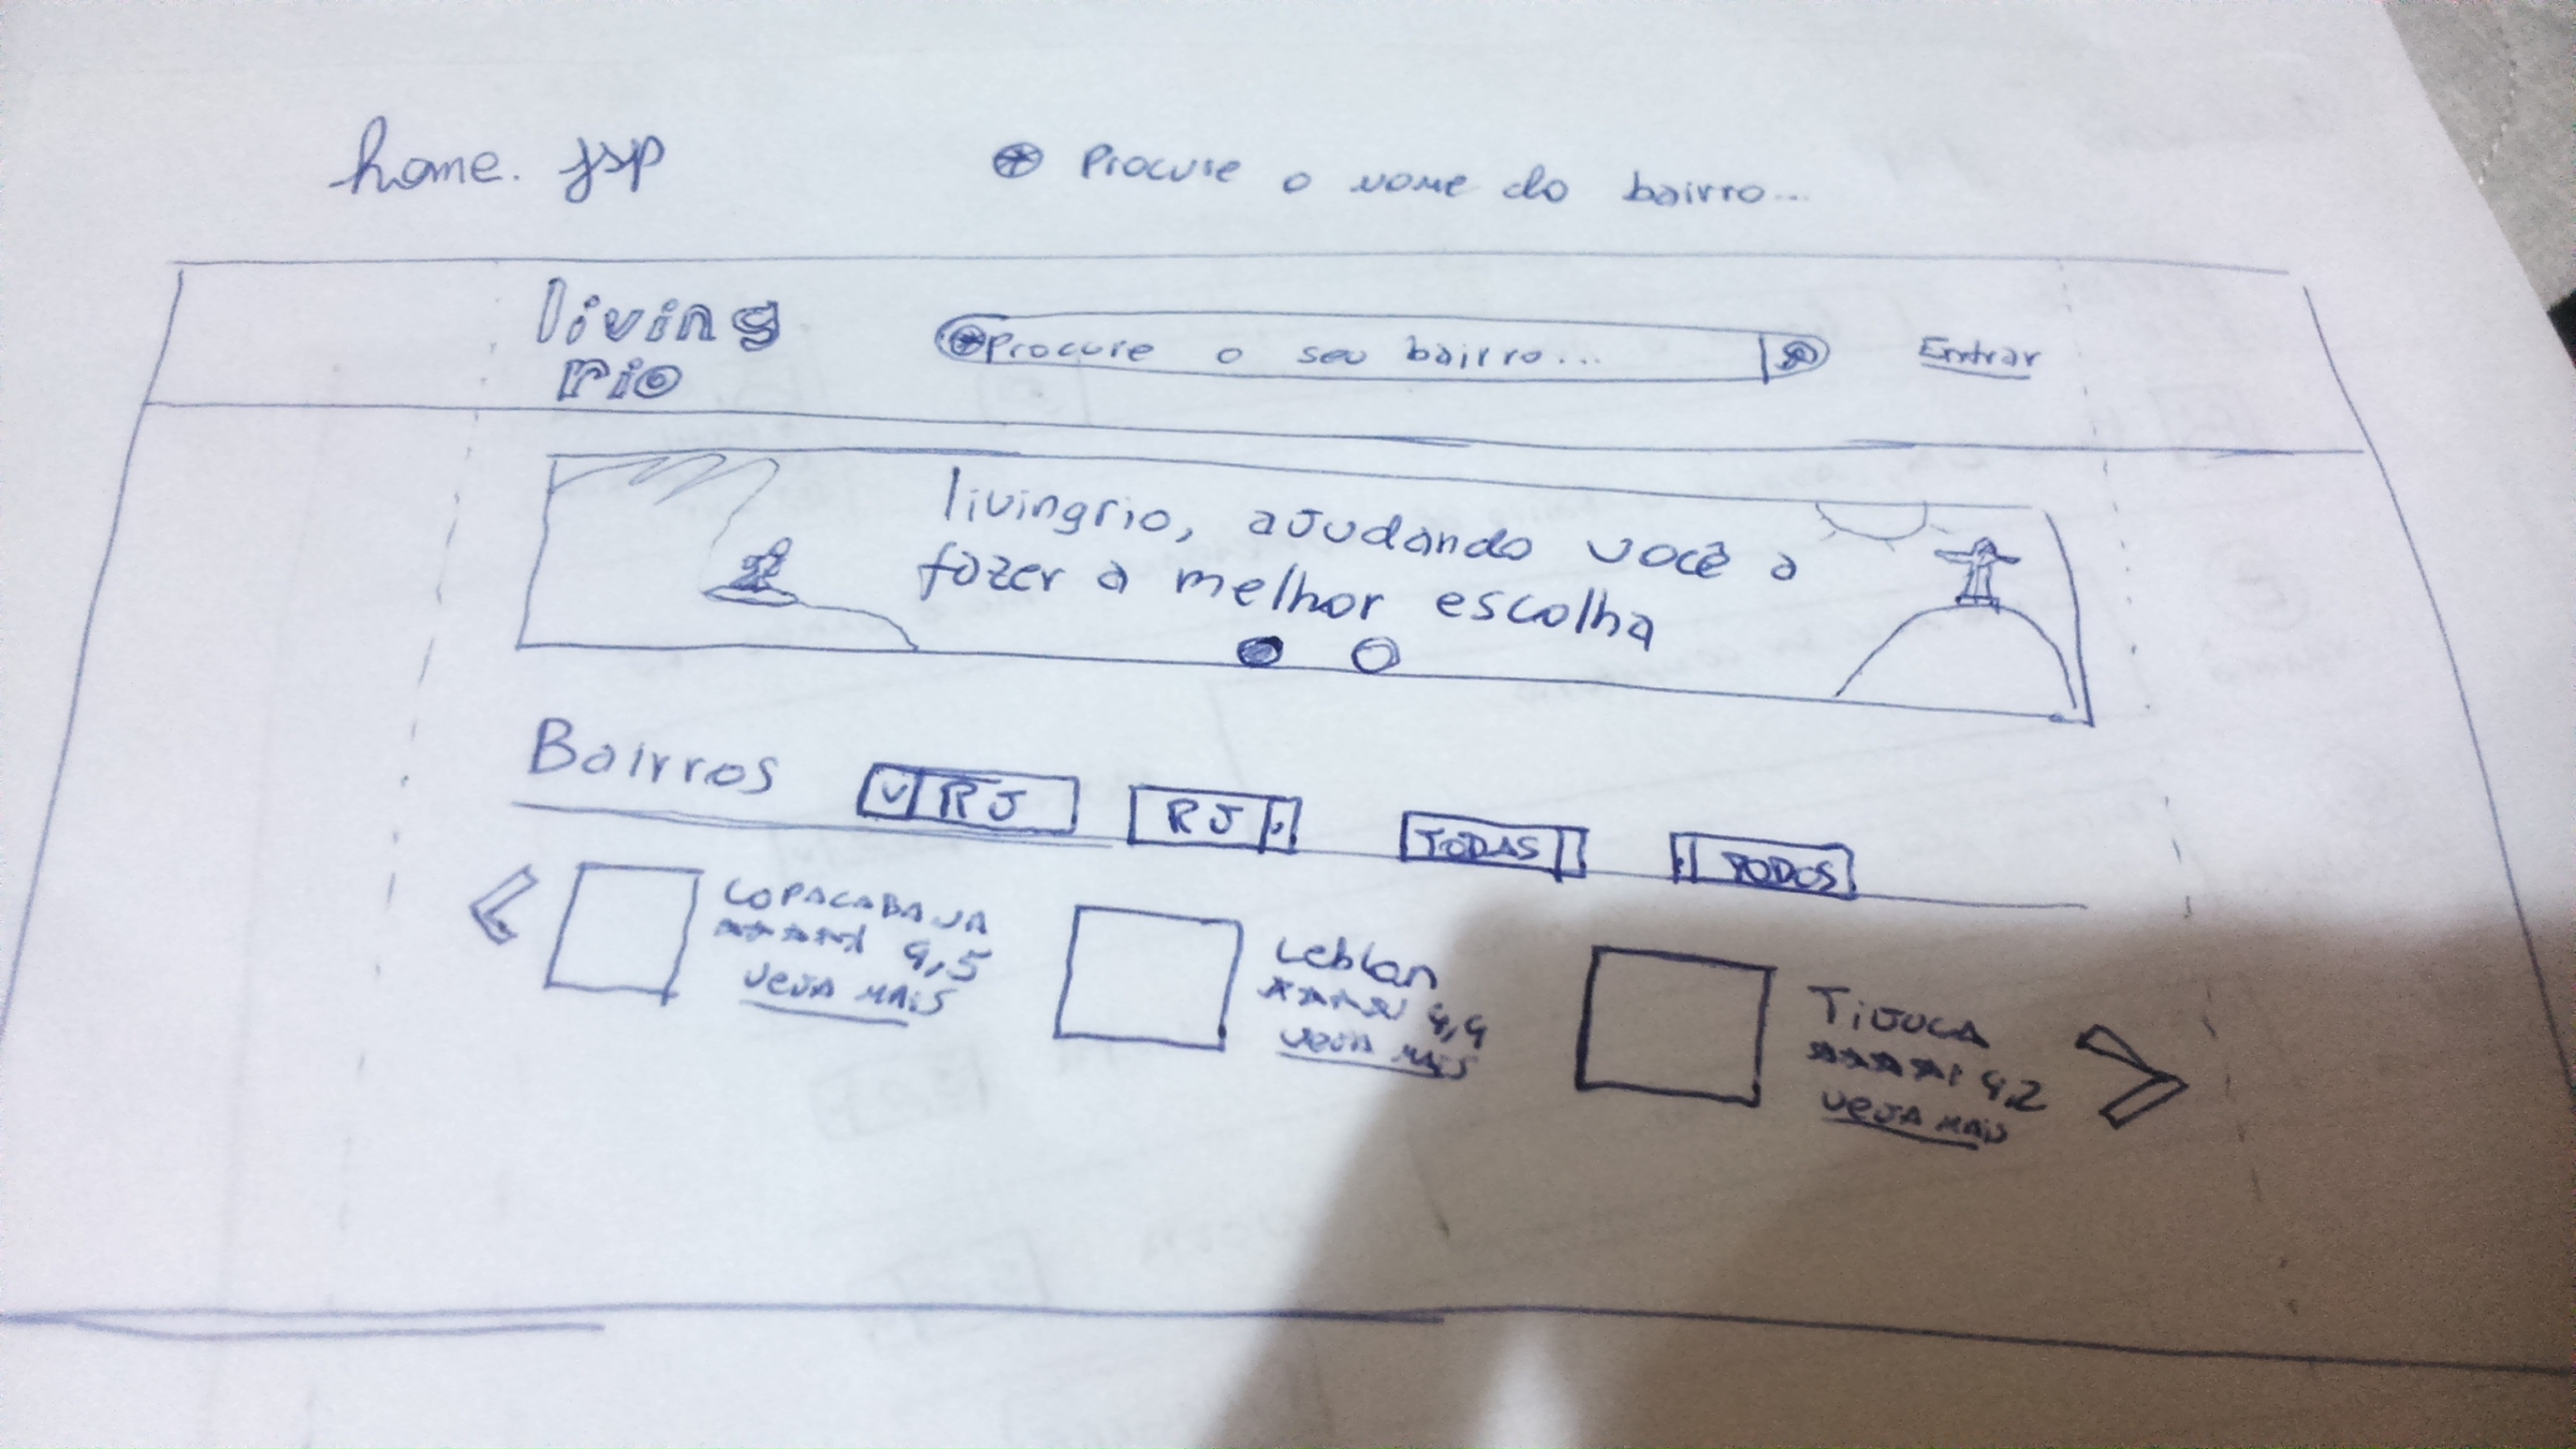 home.jsp
Procure o nome do bairro...
living
rio
Procure o seu bairro...
Entrar
livingrio, ajudando você a
fazer a melhor escolha
Bairros
RJ
RJ
TODAS
TODOS
COPACABANA
4,5
VEJA MAIS
Leblon
4,4
VEJA MAIS
TIJUCA
4,2
VEJA MAIS